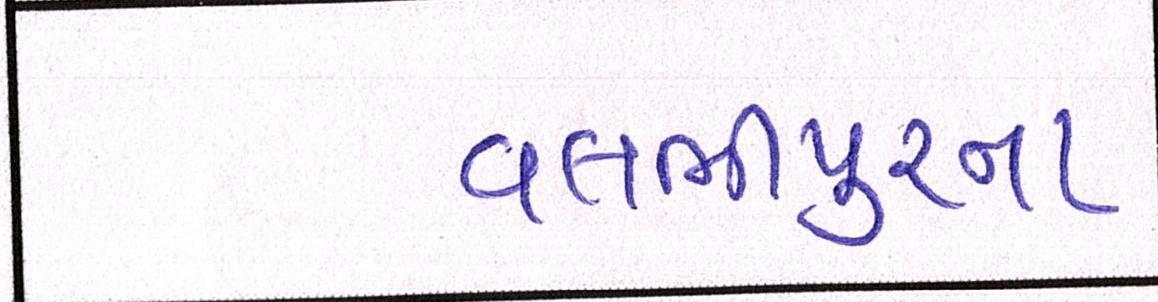 વલભીપુરના